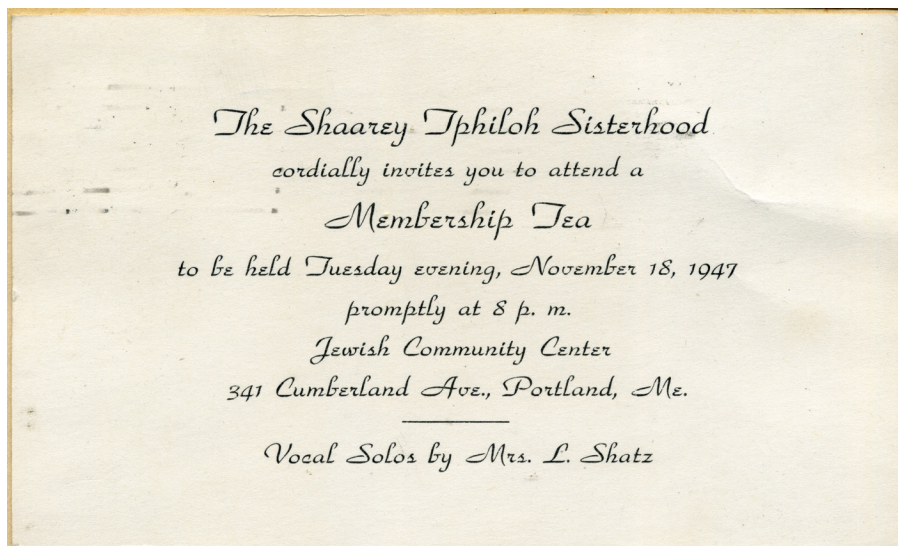 The Shaarey Tphiloh Sisterhood
cordially invites you to attend a
Membership Tea
to be held Tuesday evening, November 18, 1947
promptly at 8 p. m.
Jewish Community Center
341 Cumberland Ave., Portland, Me.
Vocal Solos by Mrs. L. Shatz